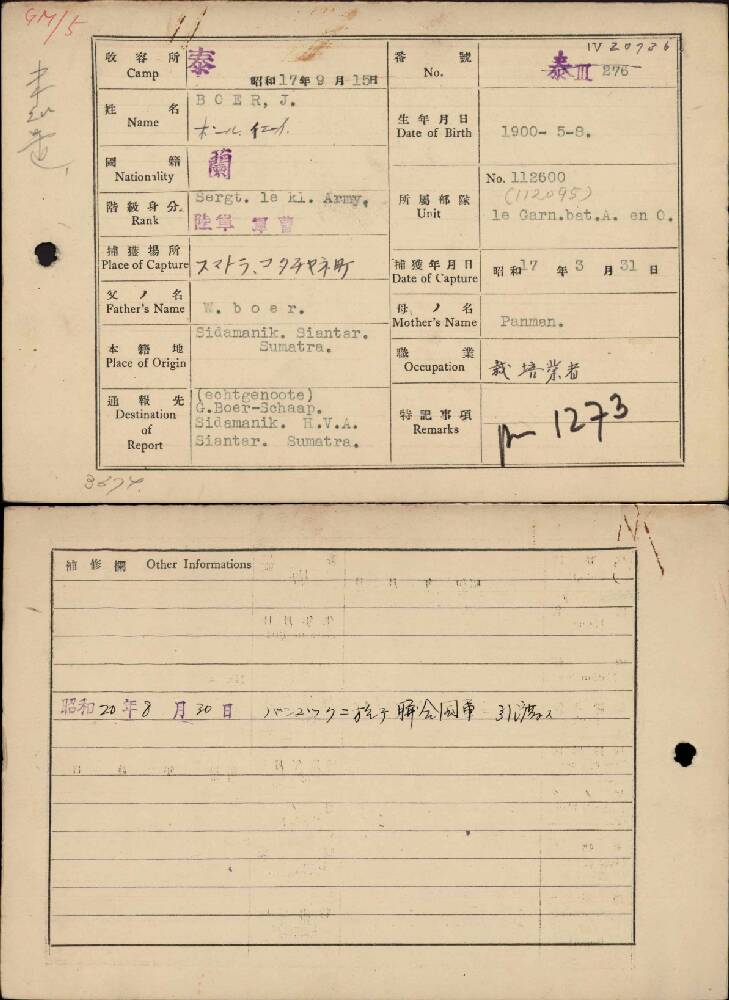 GM/5
收容所
Camp
泰
昭和17年9月15日
番號
No.
IV 20726
泰III 276
姓名
Name
BOER, J.
生年月日
Date of Birth
1900- 5-8.
國籍
Nationality
蘭
所屬部隊
Unit
No. 112600
(112095)
le Garn.bat.A. en O.
階級身分
Rank
Sergt. le kl. Army.
陸軍 軍曹
捕獲場所
Place of Capture
スマトラ、コタチャネ町
捕獲年月日
Date of Capture
昭和17年3月31日
父ノ名
Father's Name
W. boer.
母ノ名
Mother's Name
Panman.
本籍地
Place of Origin
Sidamanik. Siantar.
Sumatra.
職業
Occupation
栽培業者
通報先
Destination
of
Report
(echtgenoote)
G.Boer-Schaap.
Sidamanik. H.V.A.
Siantar. Sumatra.
特記事項
Remarks
1273
補修欄 Other Informations
昭和20年8月30日 バンコックニ於テ聯合國軍 引渡ス